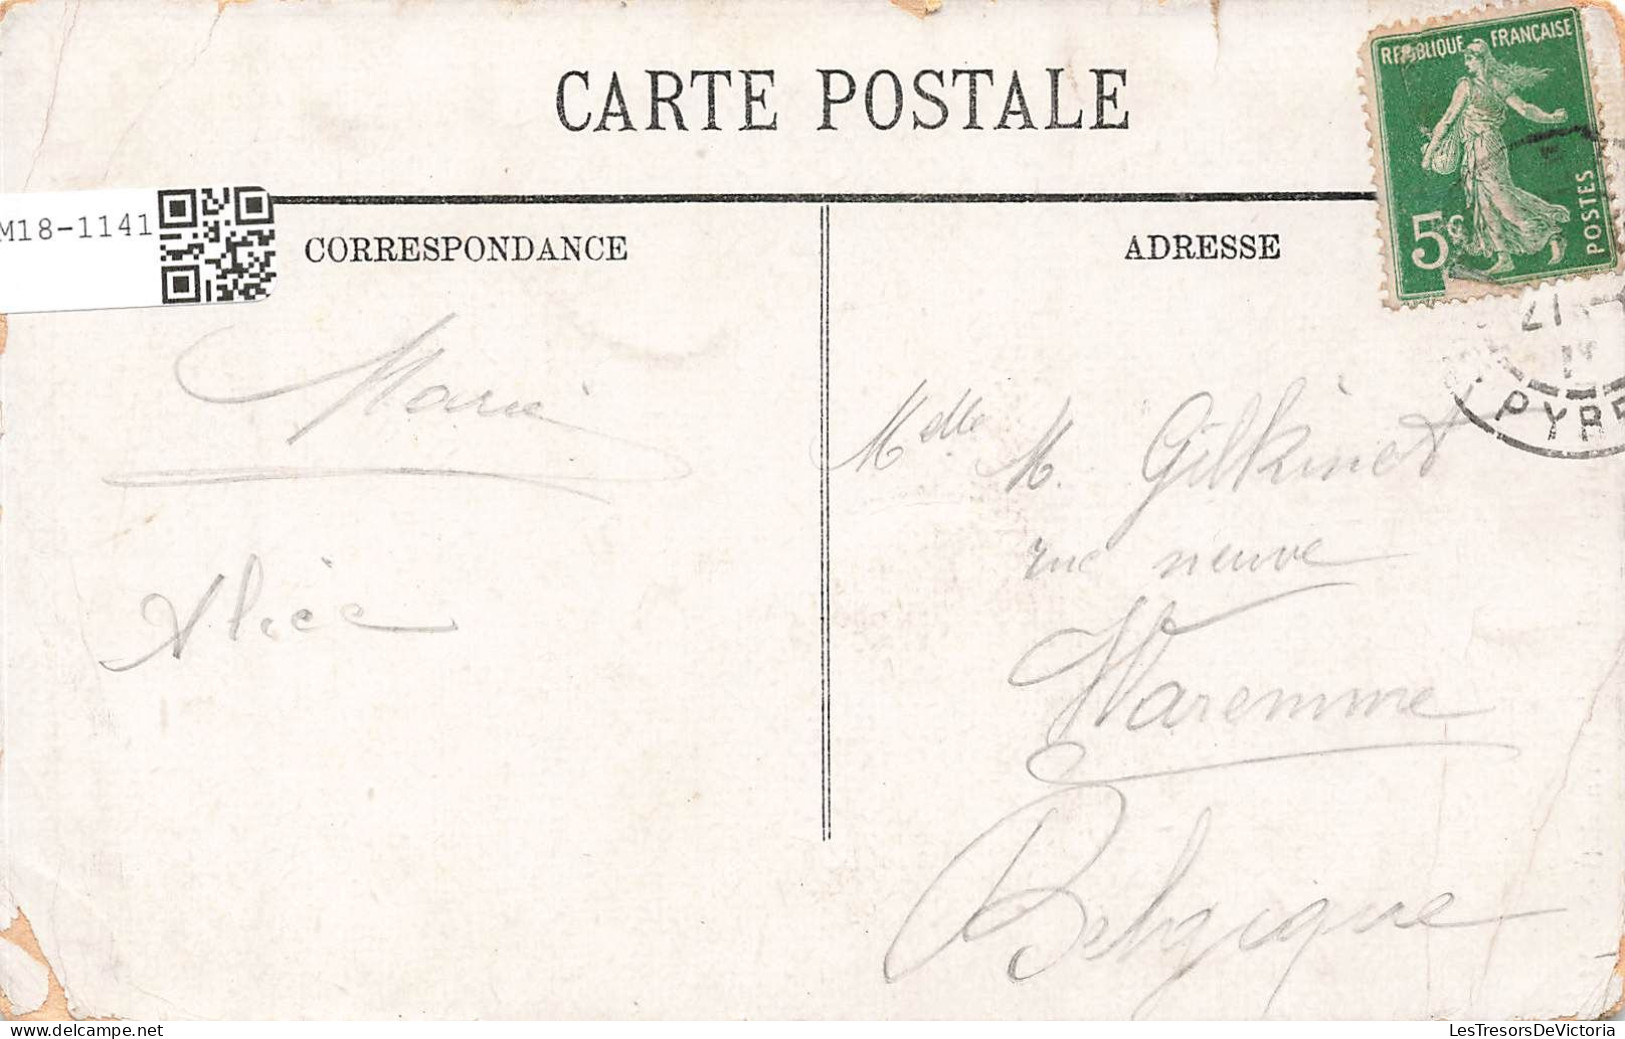 CARTE POSTALE
REPUBLIQUE FRANÇAISE
5c
POSTES
M18-1141
CORRESPONDANCE
ADRESSE
21
PYRE
Marie
Alice
Melle M. Gilkinet
rue neuve
Waremme
Belgique
LesTresorsDeVictoria
delcampe.net